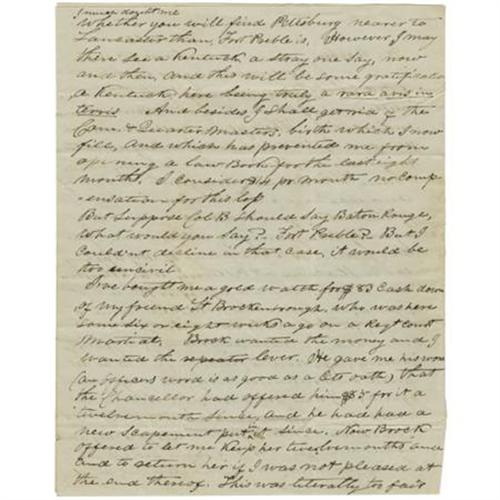 I much doubt me
Whether you will find Pittsburg nearer to
Lancaster than, Fort Preble is. However I may
there see a Kentuck, a stray one say, now
and then, and this will be some gratification
a Kentuck here being truly a rara avis in
terris. And besides I shall get rid of the
Com. & Quarter Masters, birth which I now
fill, and which has prevented me from
opening a law Book for the last eight
months. I consider pr month no comp
-ensation for this loss
But suppose Col B should say Baton Rouge,
What would you say? Fort Preble? But I
couldn't decline in that case, it would be
too uncivil
I've bought me a gold watch for $83 Cash down
of my friend Lt Brockenbrough, who was here
some six or eight weeks ago on a Regt Court
Martial. Brock wanted the money and I
wanted the repeater lever. He gave me his word
(an officers word is as good as a oath), that
the Chancellor had offered him for it a
twelvemonth since, and he had had a
new Scapement put in it since. Now Brock
offered to let me keep her twelvemonths and
and to return her if I was not pleased at
the end thereof. This was literally too fair